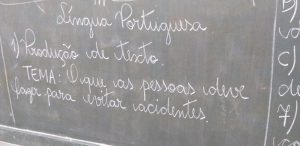 Língua Portuguesa
1) Produção de texto.
TEMA: O que as pessoas deve
fazer para evitar acidentes.
b)
c)
de
7)